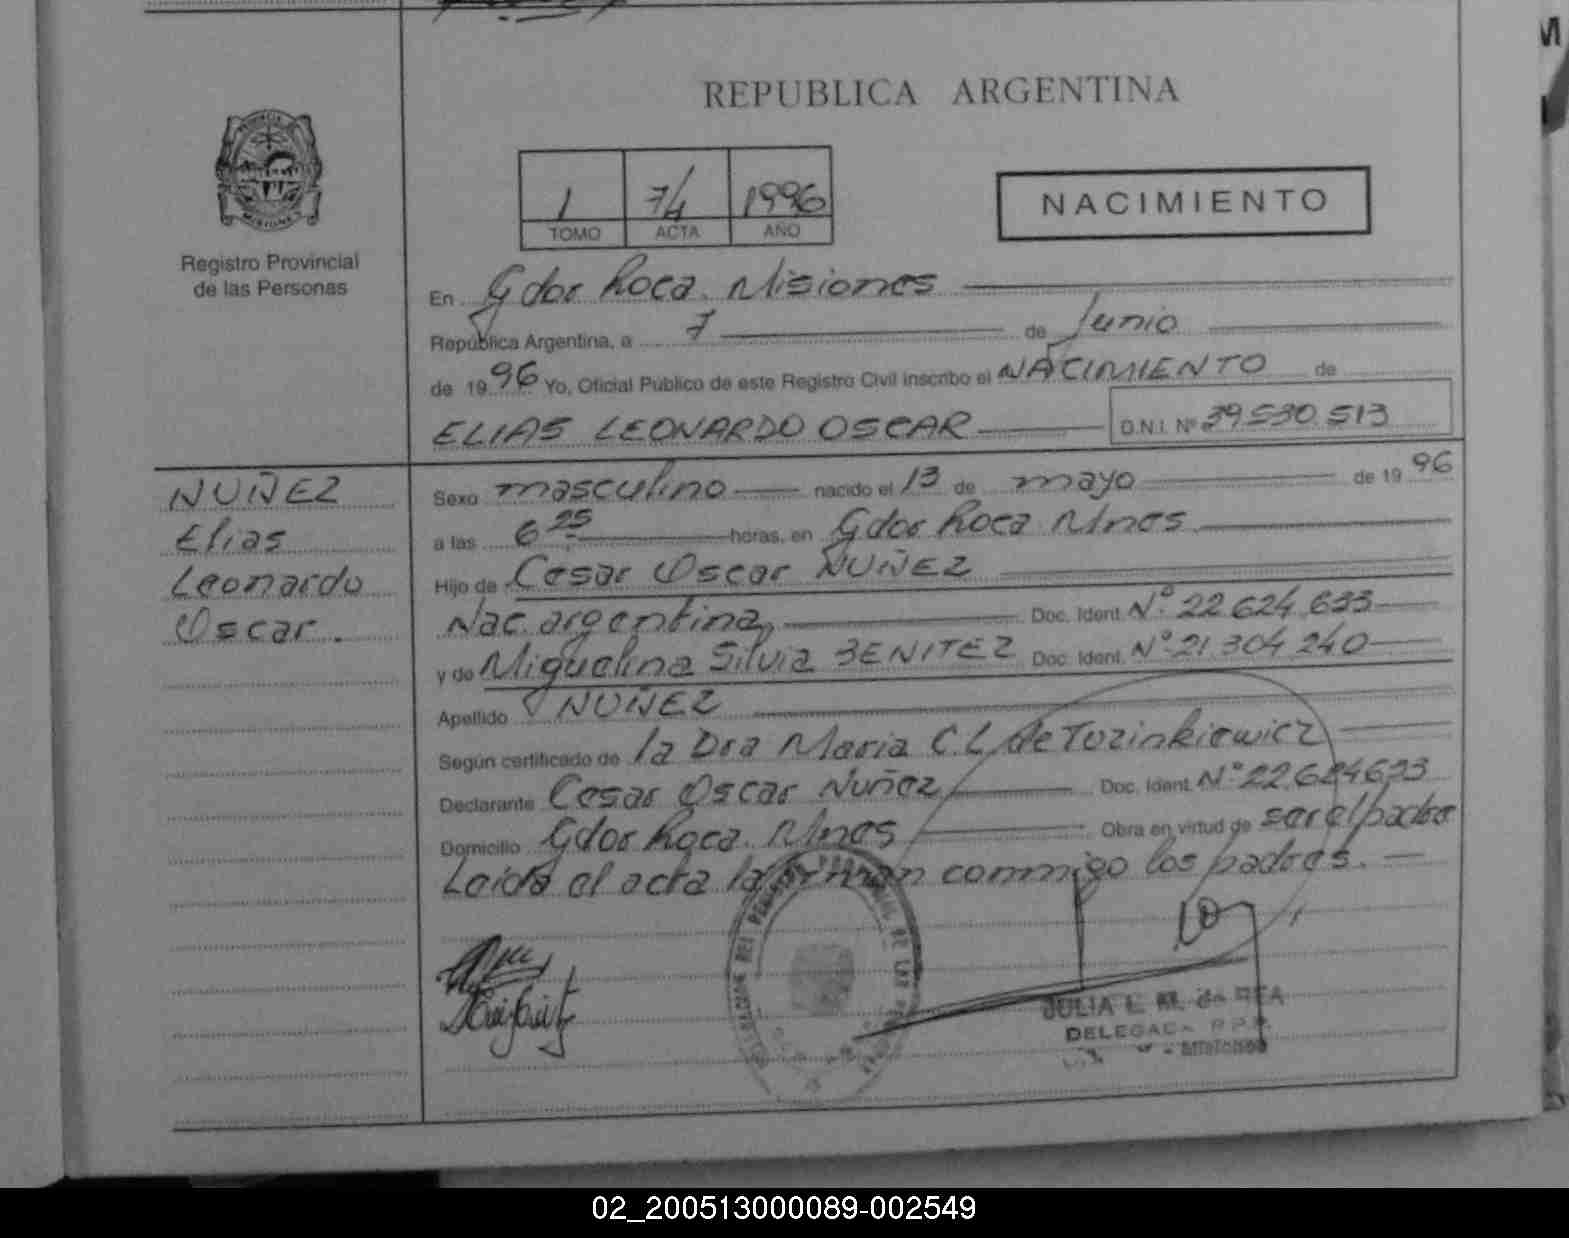 REPUBLICA ARGENTINA
1 74 1996
TOMO ACTA AÑO
NACIMIENTO
Registro Provincial
de las Personas
En Gdor Roca. Misiones
República Argentina, a 7 de Junio
de 1996 Yo, Oficial Público de este Registro Civil inscribo el NACIMIENTO de
ELIAS LEONARDO OSCAR D.N.I. Nº 39.530.513
NUÑEZ
Elias
Leonardo
Oscar.
Sexo masculino nacido el 13 de mayo de 1996
a las 6 25 horas, en Gdor Roca Mnes
Hijo de Cesar Oscar NUÑEZ
Nac. argentina, Doc. Ident. Nº 22.624.633
y de Miguelina Silvia BENITEZ Doc. Ident. Nº 21.304.240
Apellido NUÑEZ
Según certificado de la Dra Maria C.L de Tozinkiewicz
Declarante Cesar Oscar Nuñez Doc. Ident. Nº 22.624633
Domicilio Gdor Roca. Mnes Obra en virtud de ser el padre
Leida el acta la firman conmigo los padres.
JULIA L. M. de REA
DELEGADA R.P.P.
02_200513000089-002549